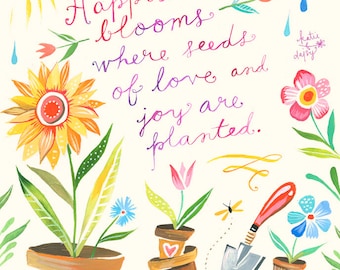 Happiness
blooms
where seeds
of love and
joy are
planted.
katie
daisy